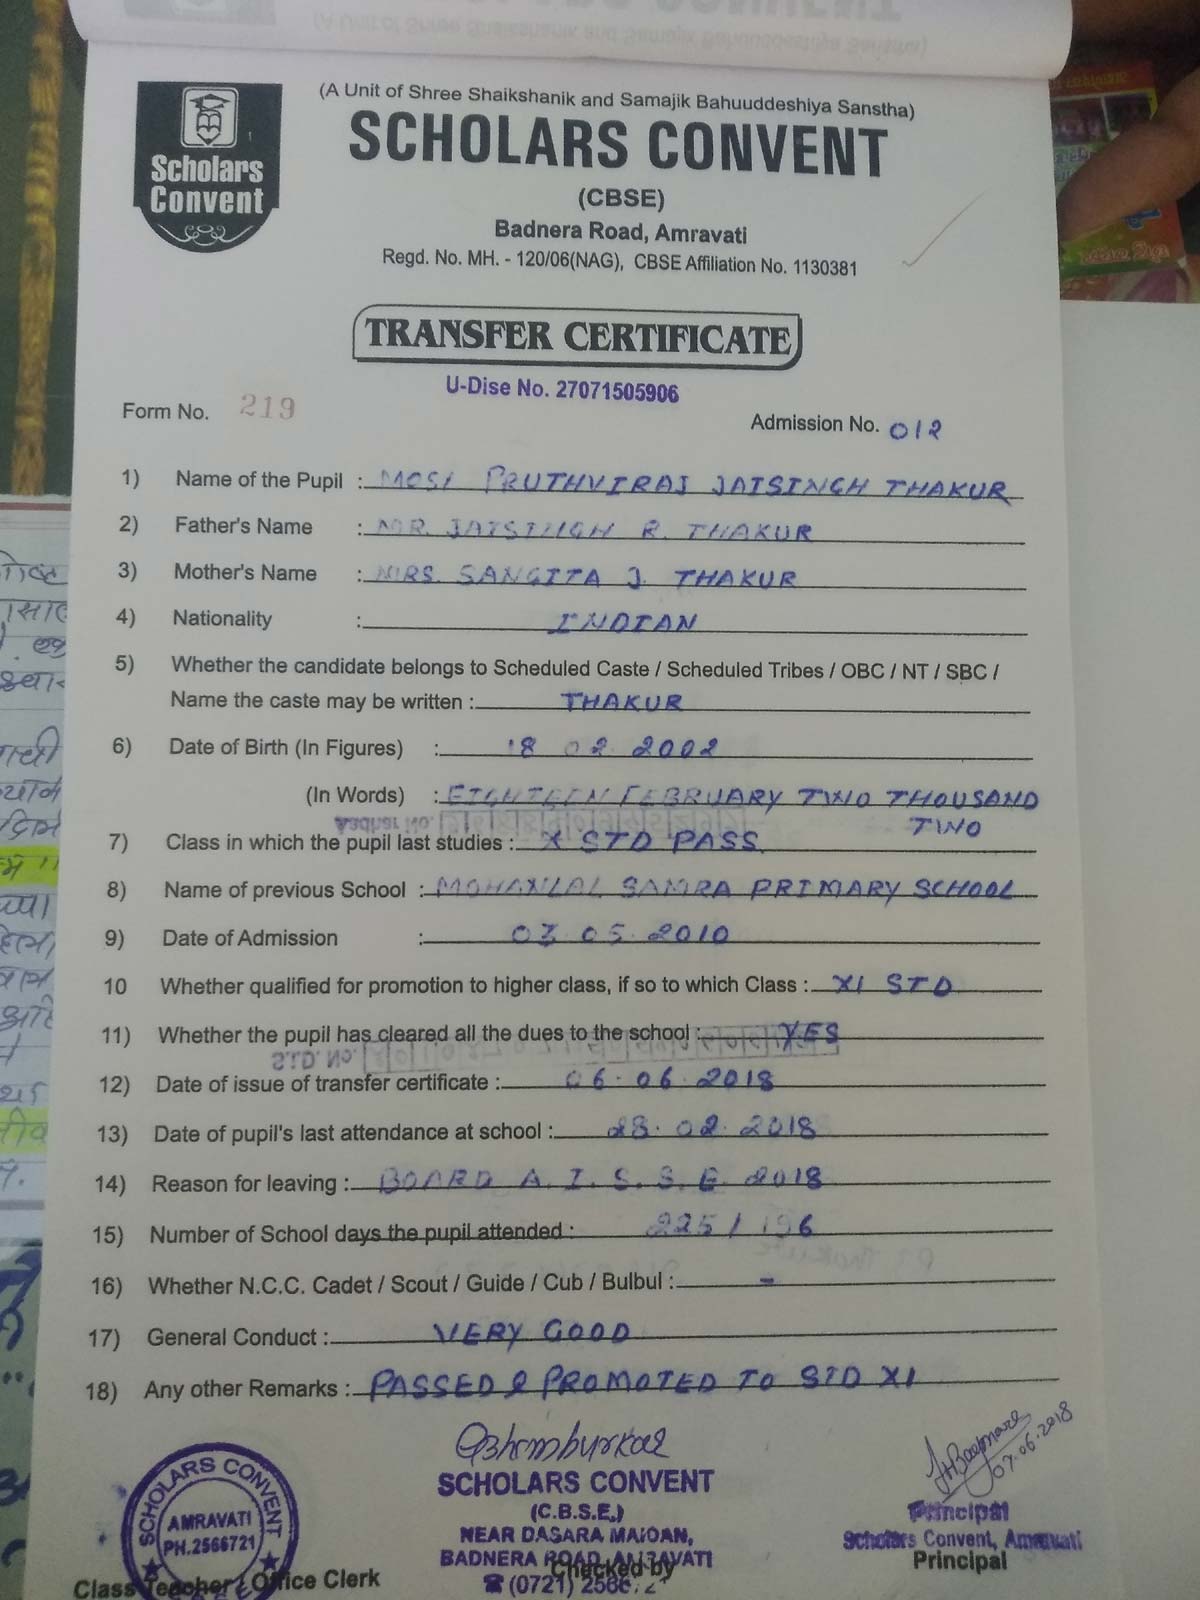 (A Unit of Shree Shaikshanik and Samajik Bahuuddeshiya Sanstha)
Scholars
Convent
SCHOLARS CONVENT
(CBSE)
Badnera Road, Amravati
Regd. No. MH. - 120/06(NAG), CBSE Affiliation No. 1130381
TRANSFER CERTIFICATE
U-Dise No. 27071505906
Form No. 219
Admission No. 012
1) Name of the Pupil : MOSI PRUTHVIRAJ JAISINGH THAKUR
2) Father's Name : MR. JAISINGH R. THAKUR
3) Mother's Name : MRS. SANGITA J. THAKUR
4) Nationality : INDIAN
5) Whether the candidate belongs to Scheduled Caste / Scheduled Tribes / OBC / NT / SBC /
Name the caste may be written : THAKUR
6) Date of Birth (In Figures) : 18 02 2002
(In Words) : EIGHTEEN FEBRUARY TWO THOUSAND
TWO
7) Class in which the pupil last studies : X STD PASS
8) Name of previous School : MOHANLAL SAMRA PRIMARY SCHOOL
9) Date of Admission : 03.05.2010
10 Whether qualified for promotion to higher class, if so to which Class : XI STD
11) Whether the pupil has cleared all the dues to the school : YES
12) Date of issue of transfer certificate : 06.06.2018
13) Date of pupil's last attendance at school : 28.02.2018
14) Reason for leaving : BOARD A. I. S. S. E 2018
15) Number of School days the pupil attended : 225 / 196
16) Whether N.C.C. Cadet / Scout / Guide / Cub / Bulbul : -
17) General Conduct : VERY GOOD
18) Any other Remarks : PASSED & PROMOTED TO STD XI
SCHOLARS CONVENT
AMRAVATI
PH.2566721
Class Teacher / Office Clerk
SCHOLARS CONVENT
(C.B.S.E.)
NEAR DASARA MAIDAN,
BADNERA ROAD, AMRAVATI
(0721)
Checked by
07.06.2018
Principal
Scholars Convent, Amravati
Principal